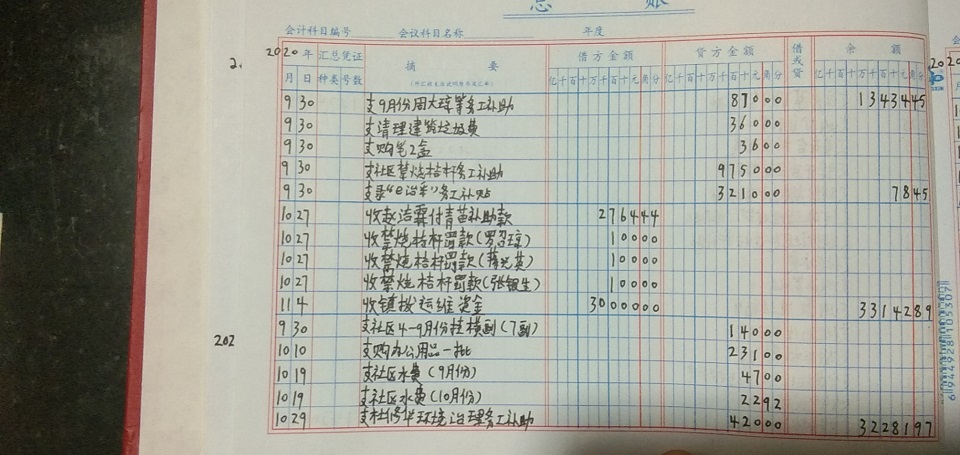 总 账
会计科目编号 会议科目名称 年度
2020年 汇总凭证 摘要 借方金额 贷方金额 借或贷 余额
月 日 种类 号数 亿千百十万千百十元角分 亿千百十万千百十元角分 亿千百十万千百十元角分
9 30 支9月份周大琼等务工补助 87000 1343445
9 30 支清理建筑垃圾费 36000
9 30 支购笔2盒 3600
9 30 支社区禁烧秸秆务工补助 975000
9 30 支录"e治采"务工补贴 321000 7845
10 27 收赵洁霖付青苗补助款 276444
10 27 收禁烧秸秆罚款(罗召琼) 10000
10 27 收禁烧秸秆罚款(蒋光英) 10000
10 27 收禁烧秸秆罚款(张银生) 10000
11 4 收镇拨运维资金 3000000 3314289
9 30 支社区4-9月份挂横副(7副) 14000
10 10 支购办公用品一批 23100
10 19 支社区水费(9月份) 4700
10 19 支社区水费(10月份) 2292
10 29 支社修华环境治理务工补助 42000 3228197
2.
202
6944928105307